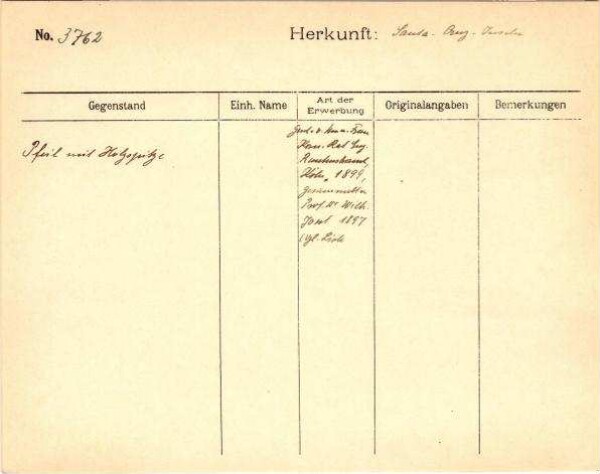 No. 3762
Herkunft: Santa-Cruz-Inseln
Gegenstand
Einh. Name
Art der Erwerbung
Originalangaben
Bemerkungen
Pfeil mit Holzspitze
Gesch. v. Frau
Kom. Rat Eug.
Rautenstrauch,
Köln, 1899,
gesammelt
Prof. Dr. Wilh.
Joest 1897
(vgl. Liste